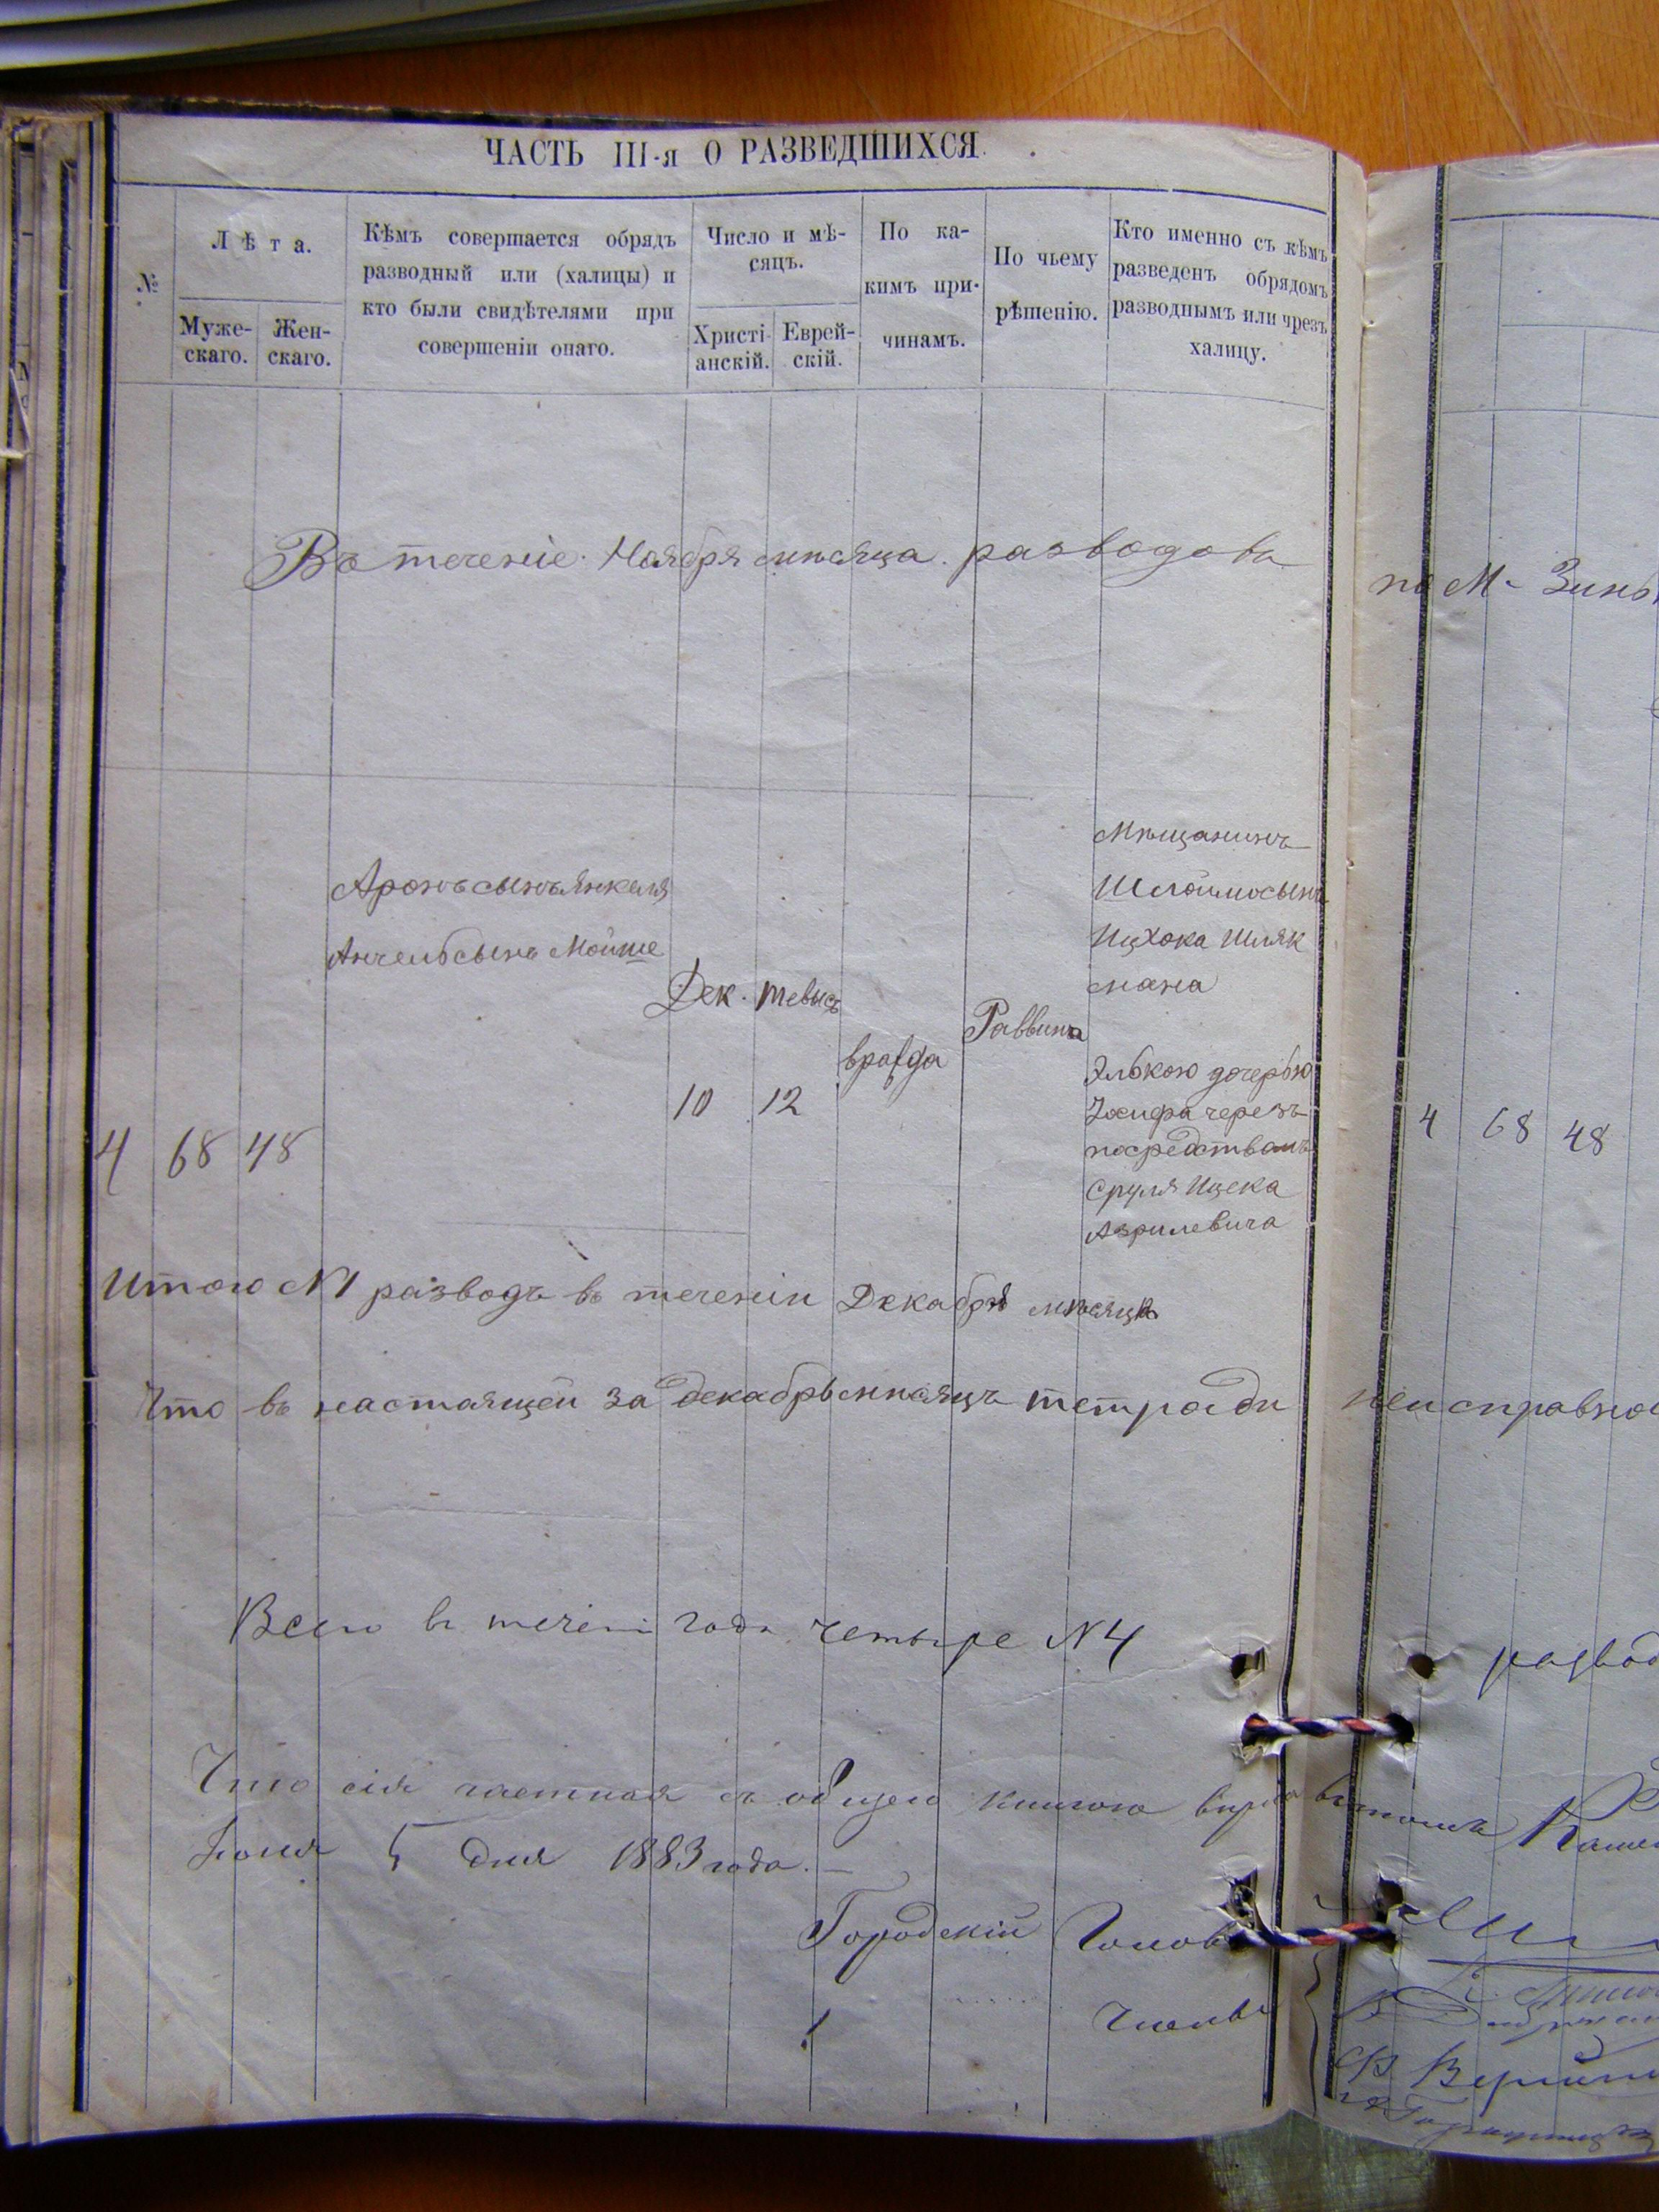 ЧАСТЬ III-я О РАЗВЕДШИХСЯ.
№
Лѣта.
Муже-
скаго.
Жен-
скаго.
Кѣмъ совершается обрядъ
разводный или (халицы) и
кто были свидѣтелями при
совершеніи онаго.
Число и мѣ-
сяцъ.
Христі-
анскій.
Еврей-
скій.
По ка-
кимъ при-
чинамъ.
По чьему
рѣшенію.
Кто именно съ кѣмъ
разведенъ обрядомъ
разводнымъ или чрезъ
халицу.
Въ теченіе Ноября мѣсяца разводовъ
по М. Зинь
4 68 48
Аронъ сынъ Янкеля
Анчель сынъ Мойше
Дек. тевисъ
10 12
вражда
Раввина
Мѣщанинъ
Шлоймо сынъ
Ицхока Шляк
мана
Элькою дочерью
Іосифа черезъ
посредствомъ
Сруля Ицека
Азрилевича
4 68 48
Итого №1 разводъ въ теченіи Декабря мѣсяца
Что въ настоящей за декабрь мѣсяцъ тетради неисправно
Всего въ течені года четыре №4
развод
Что сія частная съ общею книгою вѣрна въ томъ
Іюня 5 дня 1883 года.
Городскій Голова
Члены